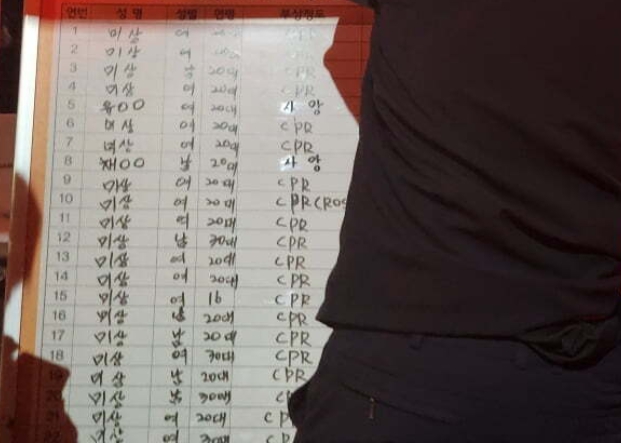 연번 성 명 성별 연령 부상정도
1 미상 여 20대 CPR
2 미상 여 CPR
3 미상 남 20대 CPR
4 미상 여 20대 CPR
5 유○○ 여 20대 사 망
6 미상 여 20대 CPR
7 미상 여 20대 CPR
8 채○○ 남 20대 사 망
9 미상 여 20대 CPR
10 미상 여 20대 CPR(ROS
11 미상 여 20대 CPR
12 미상 남 30대 CPR
13 미상 여 20대 CPR
14 미상 여 20대 CPR
15 미상 여 16 CPR
16 미상 남 20대 CPR
17 미상 남 20대 CPR
18 미상 여 30대 CPR
19 미상 남 20대 CPR
20 미상 남 30대 CP
21 미상 여 20대 CP
22 미상 여 20대 C